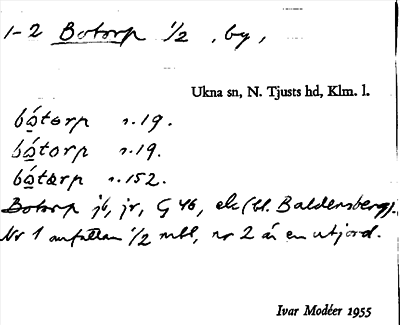 1-2 Botorp 1/2 , by,
Ukna sn, N. Tjusts hd, Klm. l.
bótorp r.19.
bótorp r.19.
bótærp r.152.
Botorp jb, jr, G 46, ek (bl. Baldersberg).
Nr 1 omfattar 1/2 mtl, nr 2 är en utjord.
Ivar Modéer 1955